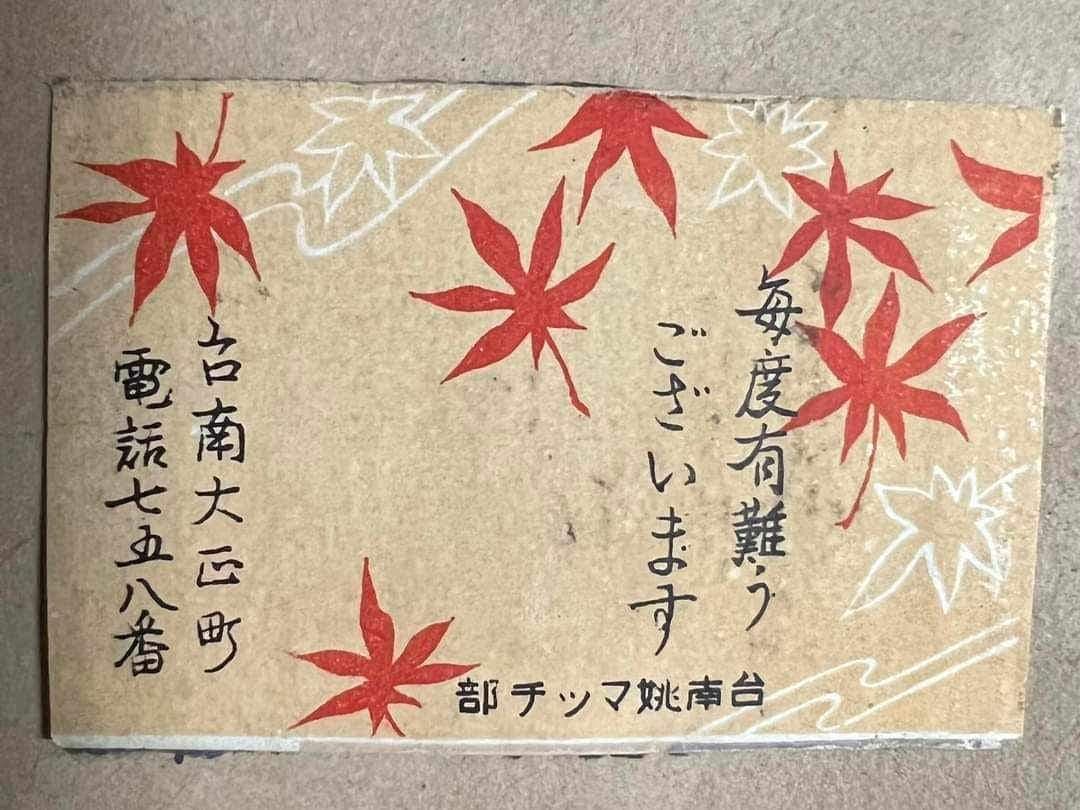 毎度有難う
ございます
台南姚マッチ部
台南大正町
電話七五八番